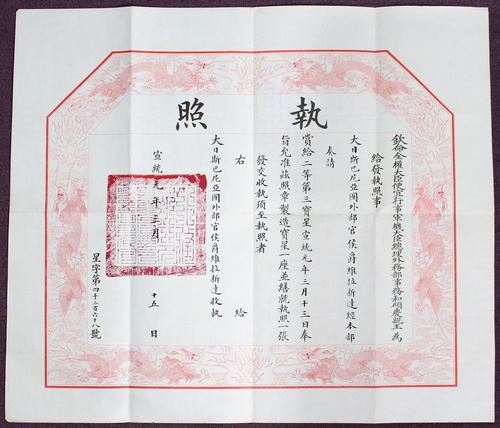 執照
欽命全權大臣便宜行事軍機大臣總理外務部事務和碩慶親王為
給發執照事
大日斯巴尼亞國外部官侯爵維拉新達經本部
奏請
賞給二等第三寶星宣統元年三月十三日奉
旨允准茲照章製造寶星一座並繕就執照一張
發交收執須至執照者
右 給
大日斯巴尼亞國外部官侯爵維拉新達收執
宣統元年三月 十五 日
星字第四千二百六十八號